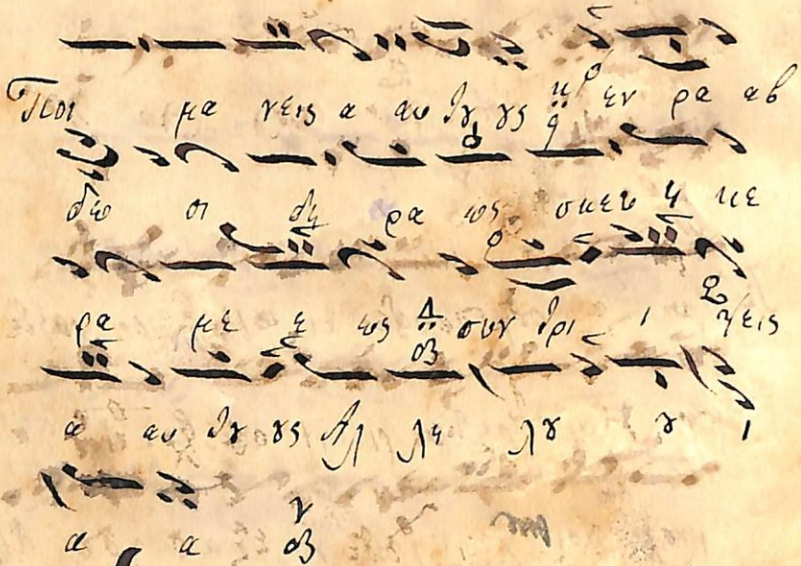 Ποι μα νεις α αυ τȣ ȣς εν ρα αβ
δω σι δη ρα ως σκευ η κε
ρα με ε ως Δ συν τρι ι ψεις
α αυ τȣ ȣς Αλ λη λȣ ȣ ι
α α